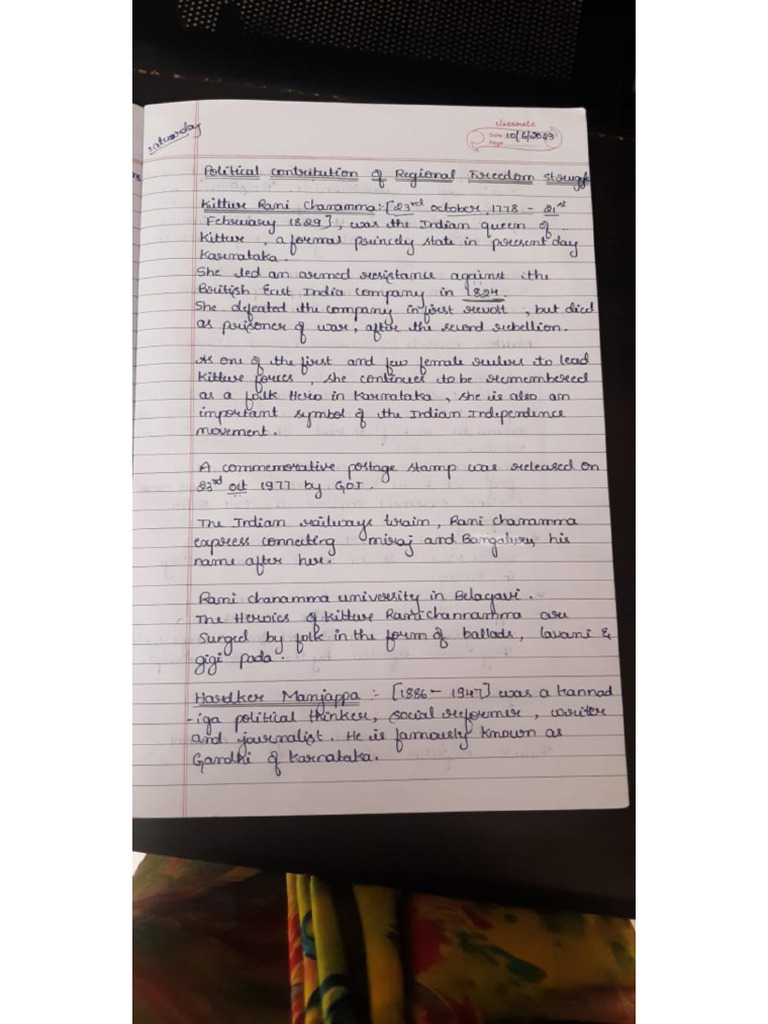 saturday
classmate
Date 10/6/2023
Page
Political contribution of Regional Freedom Struggle
Kittur Rani Chanamma:- [23rd october, 1778 - 21st
February 1829], was the Indian queen of
Kittur, a formal princely state in present day
Karnataka.
She led an armed resistance against the
British East India company in 1824.
She defeated the company in first revolt, but died
as prisoner of war, after the second rebellion.
As one of the first and few female rulers to lead
Kittur forces, she continues to be remembered
as a folk Hero in Karnataka, she is also an
important symbol of the Indian Independence
movement.
A commemorative postage stamp was released on
23rd oct 1977 by GOI.
The Indian railways train, Rani chanamma
express connecting miraj and Bangaluru, his
name after her.
Rani chanamma university in Belagavi.
The Heroics of Kittur Rani channamma are
Surged by folk in the form of ballads, lavani &
gigi pada.
Hardker Manjappa :- [1886 - 1947] was a kannad
-iga political thinker, social reformer, writer
and journalist. He is famously known as
Gandhi of Karnataka.